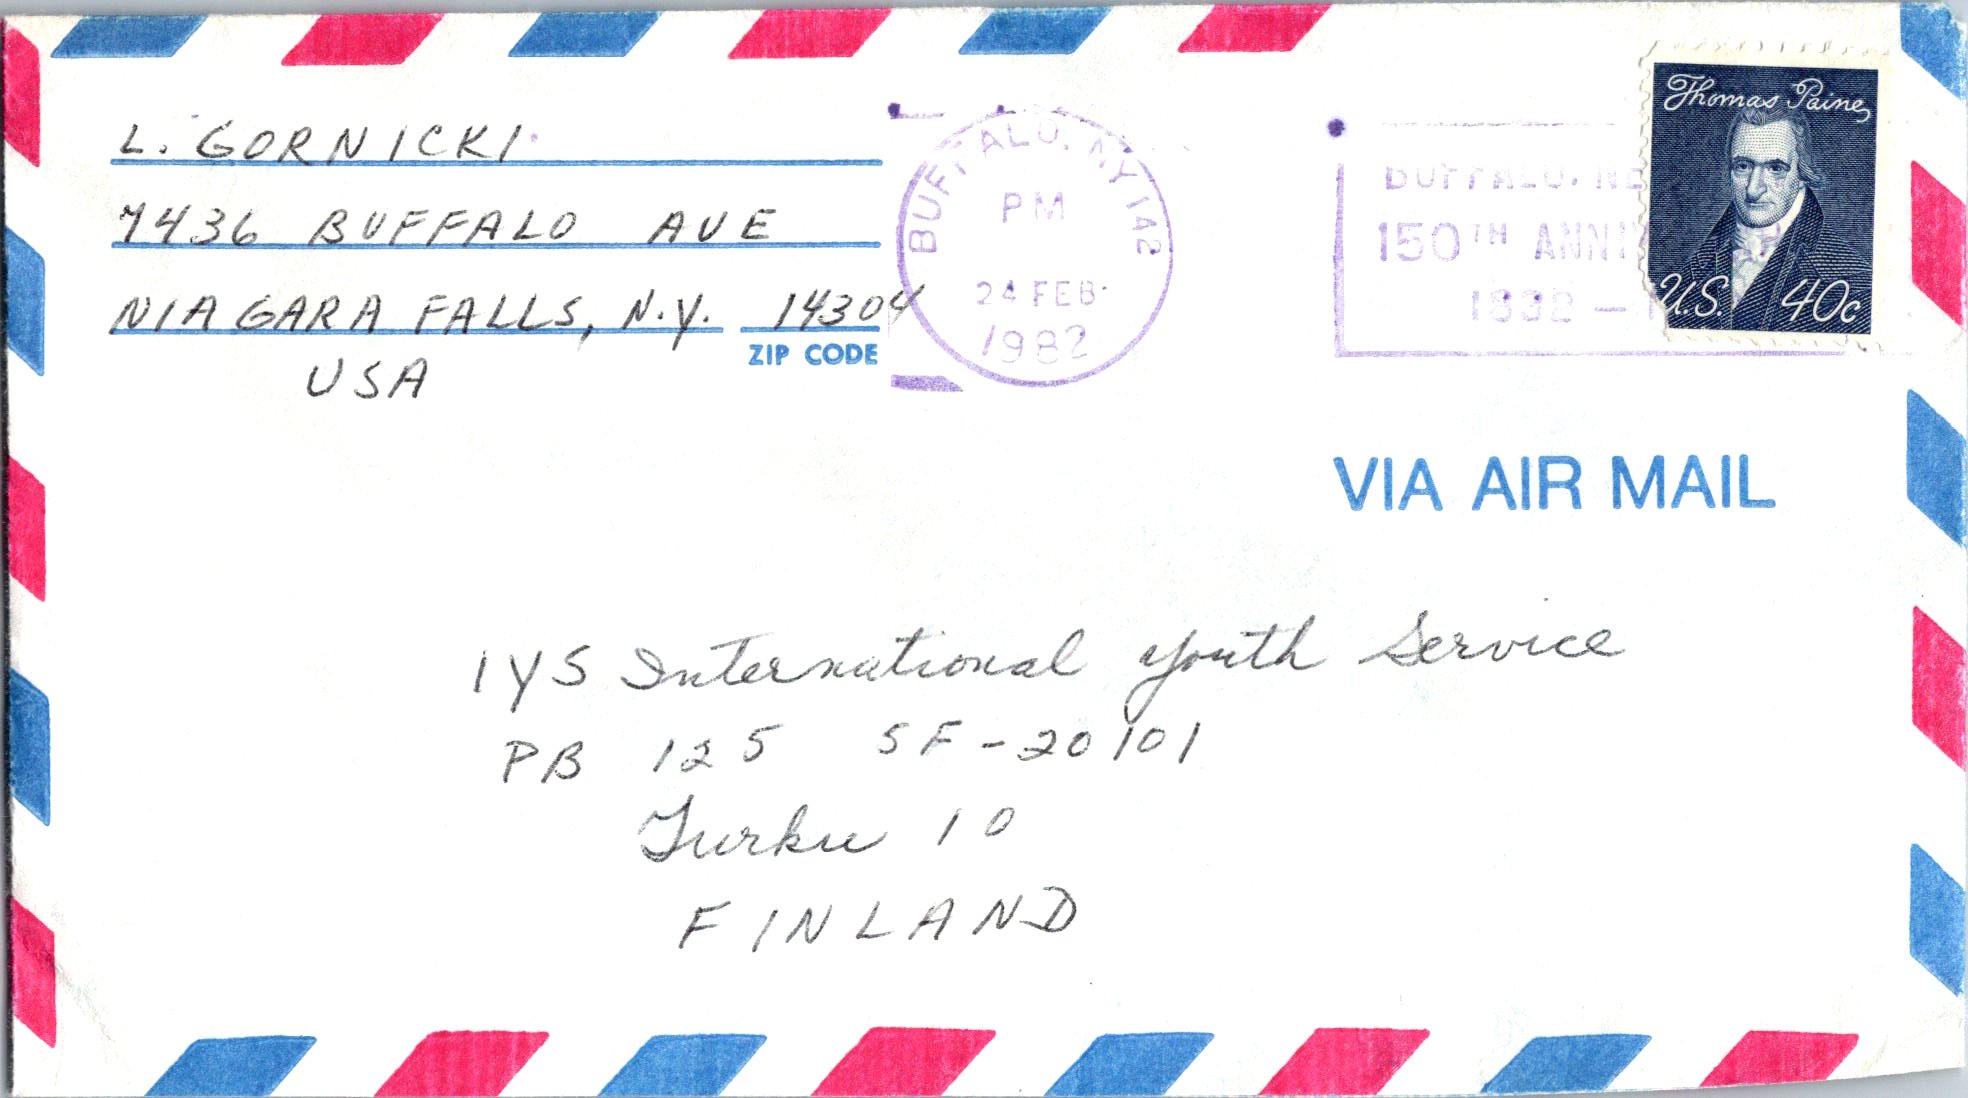 L. GORNICKI
7436 BUFFALO AVE
NIAGARA FALLS, N.Y. 14304
ZIP CODE
USA
BUFFALO, NY 142
PM
24 FEB
1982
BUFFALO, NE
150TH ANNI
1832 – 1
Thomas Paine
U.S. 40c
VIA AIR MAIL
IYS International Youth Service
PB 125 SF-20101
Turku 10
FINLAND